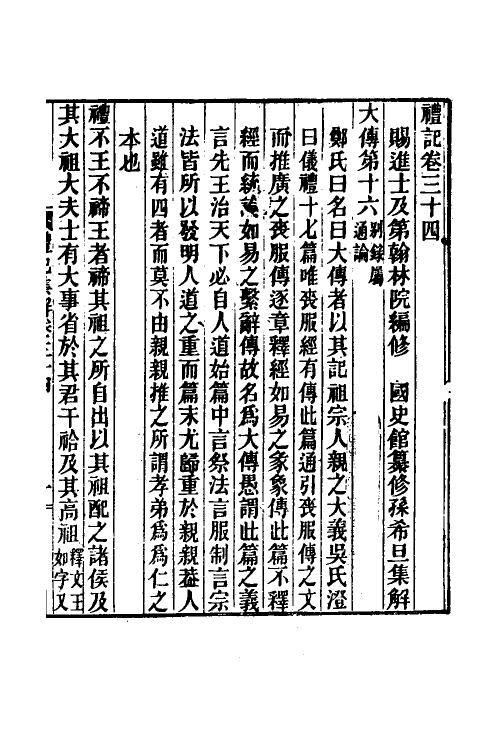 禮記卷三十四
賜進士及第翰林院編修　國史館纂修孫希旦集解
大傳第十六別錄屬通論
鄭氏曰名曰大傳者以其記祖宗人親之大義吳氏澄
曰儀禮十七篇唯喪服經有傳此篇通引喪服傳之文
而推廣之喪服傳逐章釋經如易之彖象傳此篇不釋
經而統如易之繫辭傳故名爲大傳愚謂此篇之義
言先王治天下必自人道始篇中言祭法言服制言宗
法皆所以發明人道之重而篇末尤歸重於親親葢人
道雖有四者而莫不由親親推之所謂孝弟爲爲仁之
本也
禮不王不禘王者禘其祖之所自出以其祖配之諸侯及
其大祖大夫士有大事省於其君干祫及其高祖釋文王如字又